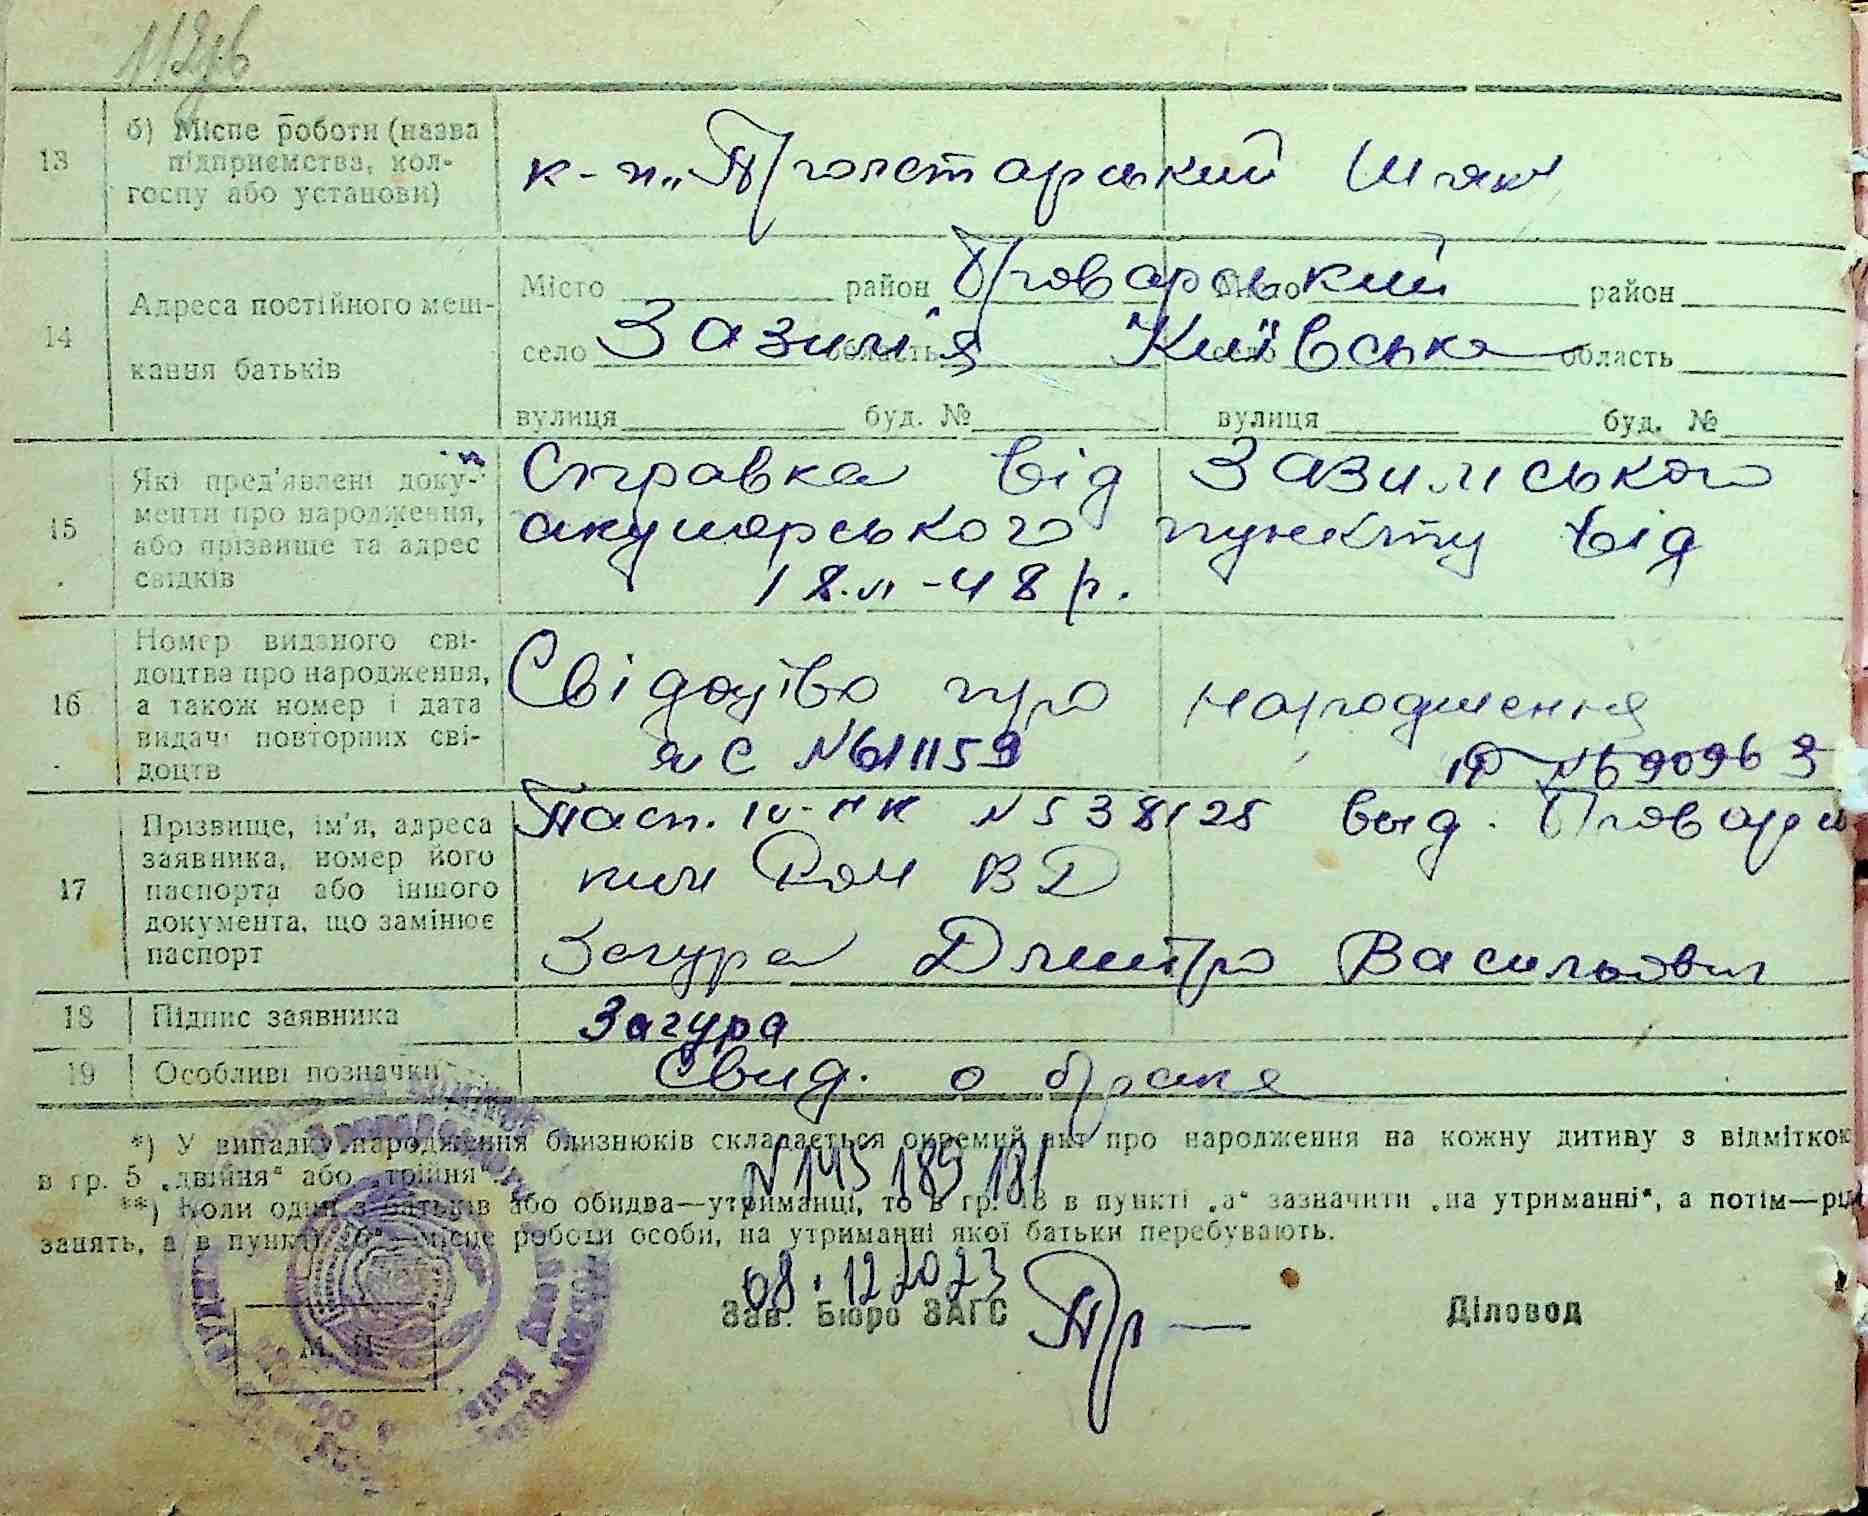 13
б) Місце роботи (назва підприємства, кол-
госпу або установи)
к-п „Пролетарський Шлях"
14
Адреса постійного меш-
кання батьків
Місто район Броварський Місто район
село Зазим'я область Київська село область
вулиця буд. № вулиця буд. №
15
Які пред'явлені доку-
менти про народження,
або прізвище та адрес
свідків
Справка від Зазимського
акушерського пункту від
18.п-48 р.
16
Номер виданого сві-
доцтва про народження,
а також номер і дата
видачі повторних сві-
доцтв
Свідоцтво про народження
ЯС №611159
№690969
17
Прізвище, ім'я, адреса
заявника, номер його
паспорта або іншого
документа, що замінює
паспорт
Пасп. IV-НК №538125 выд. Броварс
ким Ром ВД
Загура Дмитро Васильович
18 Підпис заявника
Загура
19 Особливі позначки
Свид. о браке
*) У випадку народження близнюків складається окремий акт про народження на кожну дитину з відміткою
в гр. 5 „двійня" або „трійня"
N 145 189 181
**) Коли один з батьків або обидва—утриманці, то в гр. 13 в пункті „а" зазначити „на утриманні", а потім—рід
занять, а в пункті „б"—місце роботи особи, на утриманні якої батьки перебувають.
08.12 2023
Зав. Бюро ЗАГС Діловод
М. П.